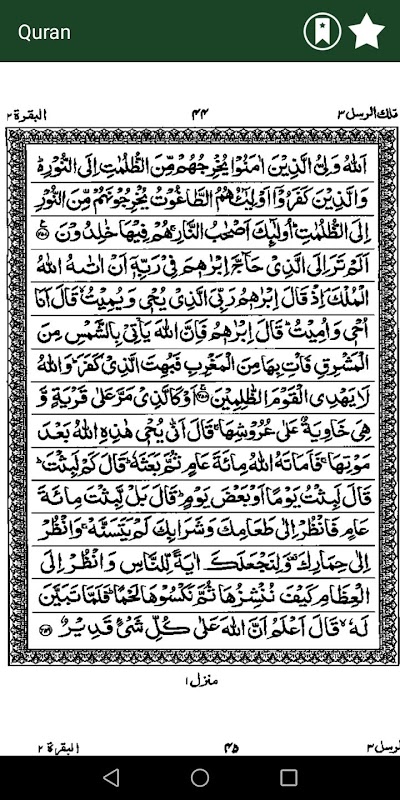 Quran
تلك الرسل ٣ ٤٤ البقرة ٢
اَللّٰهُ وَلِىُّ الَّذِيۡنَ اٰمَنُوۡا يُخۡرِجُهُمۡ مِّنَ الظُّلُمٰتِ اِلَى النُّوۡرِ ؕ
وَالَّذِيۡنَ كَفَرُوۡۤا اَوۡلِيٰٓـئُهُمُ الطَّاغُوۡتُ يُخۡرِجُوۡنَهُمۡ مِّنَ النُّوۡرِ
اِلَى الظُّلُمٰتِ ؕ اُولٰٓئِكَ اَصۡحٰبُ النَّارِ ۚ هُمۡ فِيۡهَا خٰلِدُوۡنَ ﴿۲۵۷﴾
اَلَمۡ تَرَ اِلَى الَّذِىۡ حَآجَّ اِبۡرٰهٖمَ فِىۡ رَبِّهٖۤ اَنۡ اٰتٰٮهُ اللّٰهُ
الۡمُلۡكَ ۘ اِذۡ قَالَ اِبۡرٰهٖمُ رَبِّىَ الَّذِىۡ يُحۡىٖ وَيُمِيۡتُ ۙ قَالَ اَنَا
اُحۡىٖ وَاُمِيۡتُ ؕ قَالَ اِبۡرٰهٖمُ فَاِنَّ اللّٰهَ يَاۡتِىۡ بِالشَّمۡسِ مِنَ
الۡمَشۡرِقِ فَاۡتِ بِهَا مِنَ الۡمَغۡرِبِ فَبُهِتَ الَّذِىۡ كَفَرَ ؕ وَاللّٰهُ
لَا يَهۡدِى الۡقَوۡمَ الظّٰلِمِيۡنَ ﴿۲۵۸﴾ اَوۡ كَالَّذِىۡ مَرَّ عَلٰى قَرۡيَةٍ وَّ
هِىَ خَاوِيَةٌ عَلٰى عُرُوۡشِهَا ۚ قَالَ اَنّٰى يُحۡىٖ هٰذِهِ اللّٰهُ بَعۡدَ
مَوۡتِهَا ۚ فَاَمَاتَهُ اللّٰهُ مِائَةَ عَامٍ ثُمَّ بَعَثَهٗ ؕ قَالَ كَمۡ لَبِثۡتَ ؕ
قَالَ لَبِثۡتُ يَوۡمًا اَوۡ بَعۡضَ يَوۡمٍ ؕ قَالَ بَلۡ لَّبِثۡتَ مِائَةَ
عَامٍ فَانۡظُرۡ اِلٰى طَعَامِكَ وَشَرَابِكَ لَمۡ يَتَسَنَّهۡ ۚ وَانۡظُرۡ
اِلٰى حِمَارِكَ وَلِنَجۡعَلَكَ اٰيَةً لِّلنَّاسِ وَانۡظُرۡ اِلَى
الۡعِظَامِ كَيۡفَ نُنۡشِزُهَا ثُمَّ نَكۡسُوۡهَا لَحۡمًا ؕ فَلَمَّا تَبَيَّنَ
لَهٗ ۙ قَالَ اَعۡلَمُ اَنَّ اللّٰهَ عَلٰى كُلِّ شَىۡءٍ قَدِيۡرٌ ﴿۲۵۹﴾
منزل ١
لرسل ٣ ٤٥ البقرة ٢